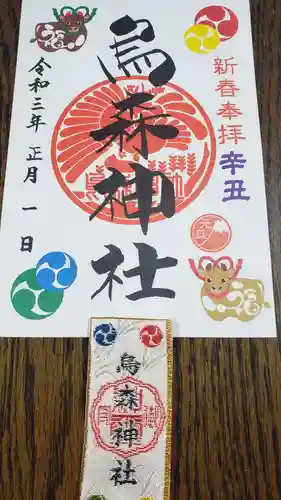 新春奉拝 辛丑
烏森神社
令和三年 正月 一日
元旦
烏森神社